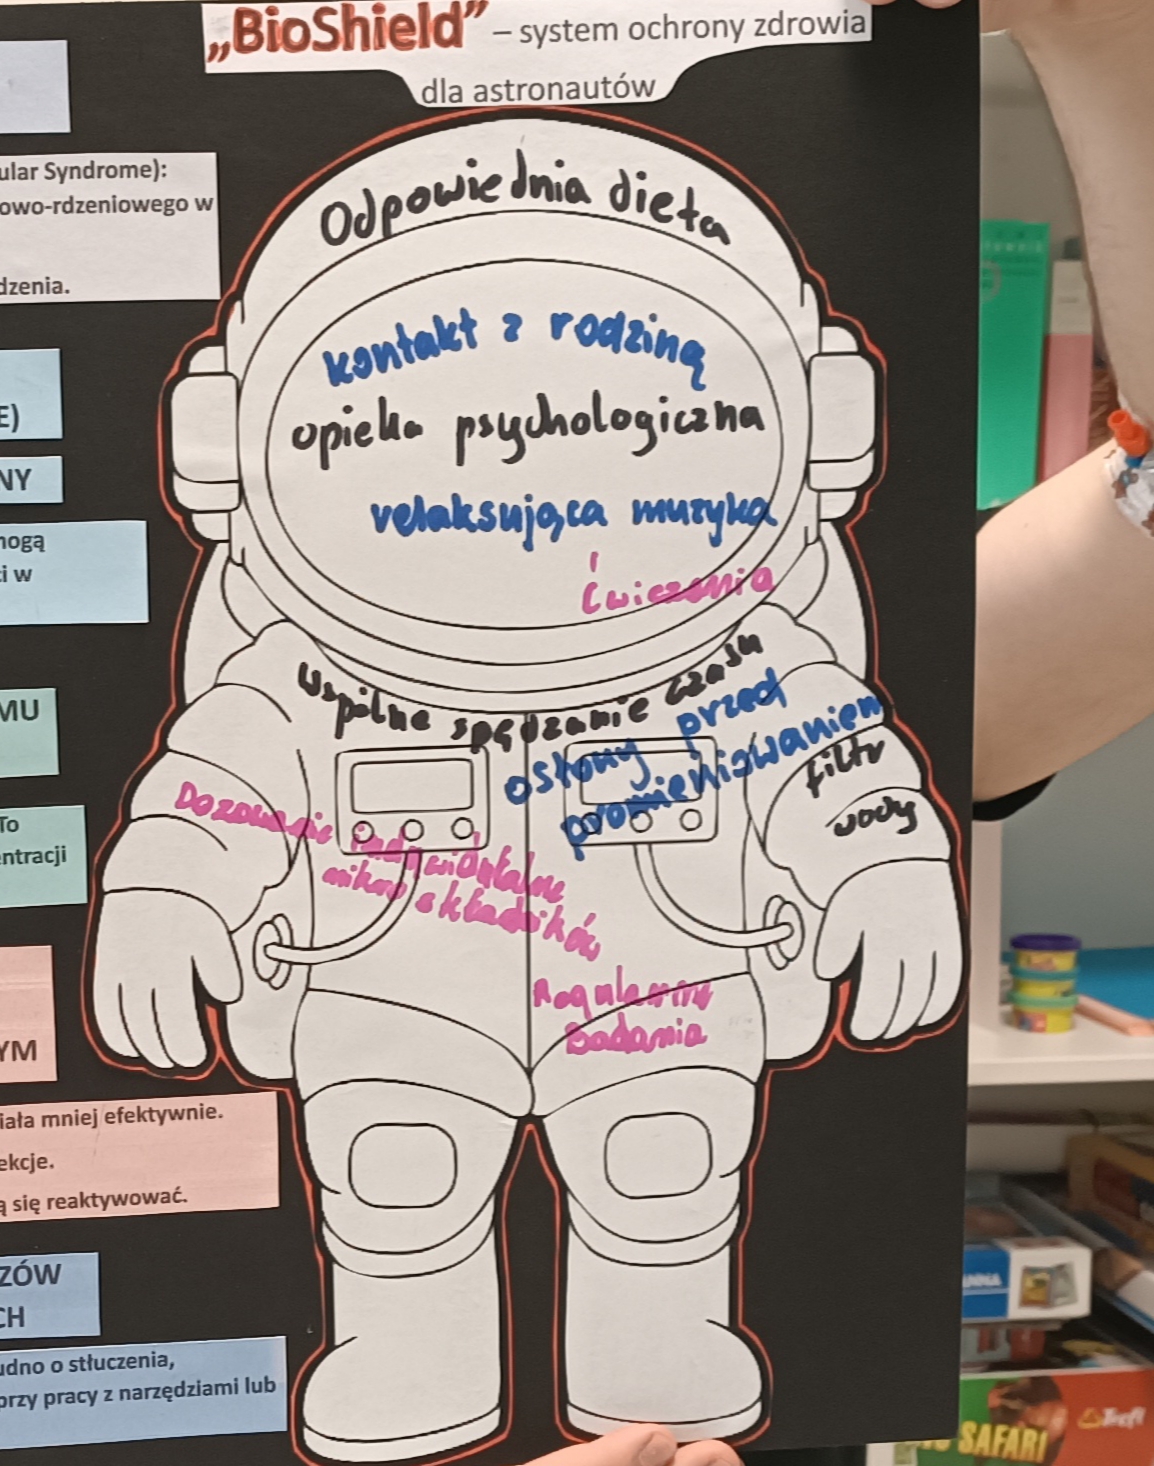 „BioShield” – system ochrony zdrowia
dla astronautów
ular Syndrome):
owo-rdzeniowego w
dzenia.
E)
NY
nogą
i w
MU
To
entracji
YM
iała mniej efektywnie.
ekcje.
ą się reaktywować.
ZÓW
CH
udno o stłuczenia,
przy pracy z narzędziami lub
Odpowiednia dieta
kontakt z rodziną
opieka psychologiczna
relaksująca muzyka
i
ćwiczenia
Wspólne spędzanie czasu
osłony przed
promieniowaniem
filtr
wody
Dozowanie
mikro składników
Regularne
Badania
SAFARI
Trefl